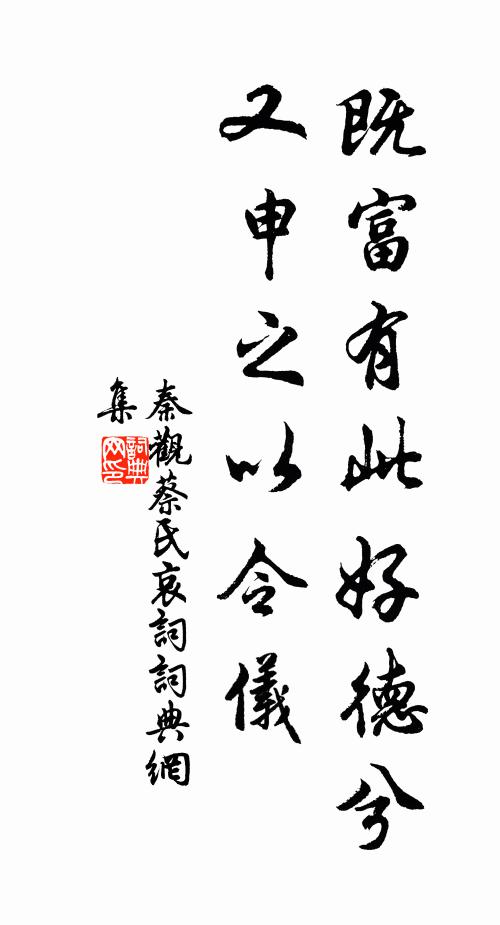 既富有此好德兮
又申之以令儀
秦觀蔡氏哀詞詞典網
集
詞典网印